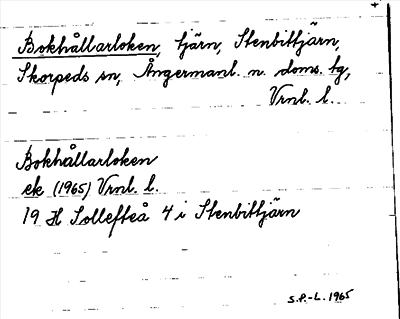 Bokhållarloken, tjärn, Stenbittjärn,
Skorpeds sn, Ångermanl. n. doms. tg,
Vrnl. l.
Bokhållarloken
ek (1965) Vrnl. l.
19 H Sollefteå 4 i Stenbittjärn
S.P.-L. 1965